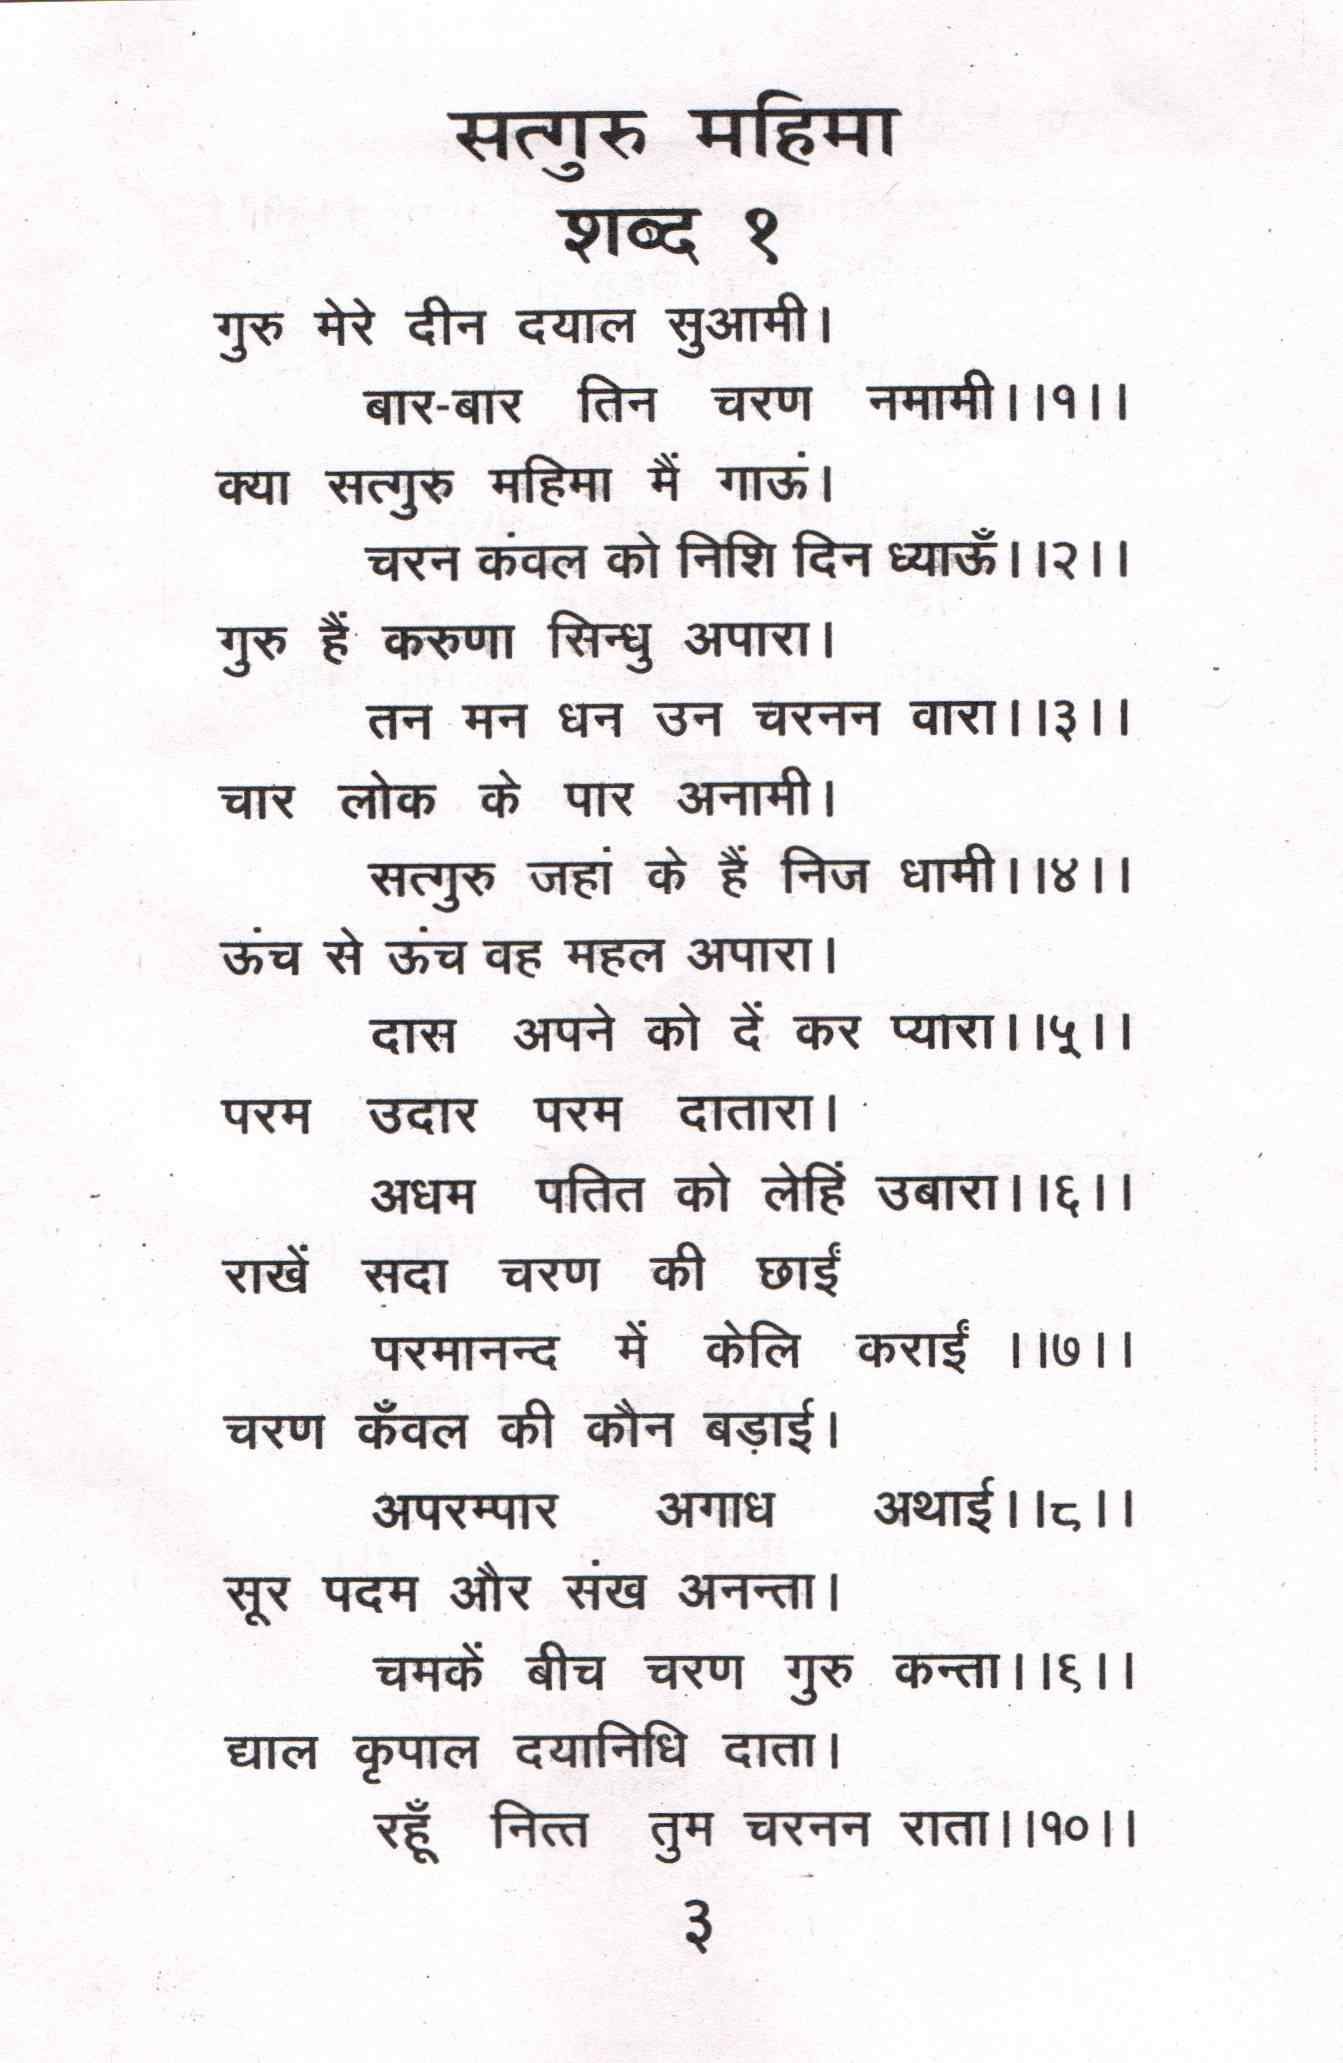 सत्गुरु महिमा
शब्द १
गुरु मेरे दीन दयाल सुआमी।
बार-बार तिन चरण नमामी।।१।।
क्या सत्गुरु महिमा मैं गाऊं।
चरन कंवल को निशि दिन ध्याऊँ।।२।।
गुरु हैं करुणा सिन्धु अपारा।
तन मन धन उन चरनन वारा।।३।।
चार लोक के पार अनामी।
सत्गुरु जहां के हैं निज धामी।।४।।
ऊंच से ऊंच वह महल अपारा।
दास अपने को दें कर प्यारा।।५।।
परम उदार परम दातारा।
अधम पतित को लेहिं उबारा।।६।।
राखें सदा चरण की छाईं
परमानन्द में केलि कराईं ।।७।।
चरण कँवल की कौन बड़ाई।
अपरम्पार अगाध अथाई।।८।।
सूर पदम और संख अनन्ता।
चमकें बीच चरण गुरु कन्ता।।६।।
द्याल कृपाल दयानिधि दाता।
रहूँ नित्त तुम चरनन राता।।१०।।
३